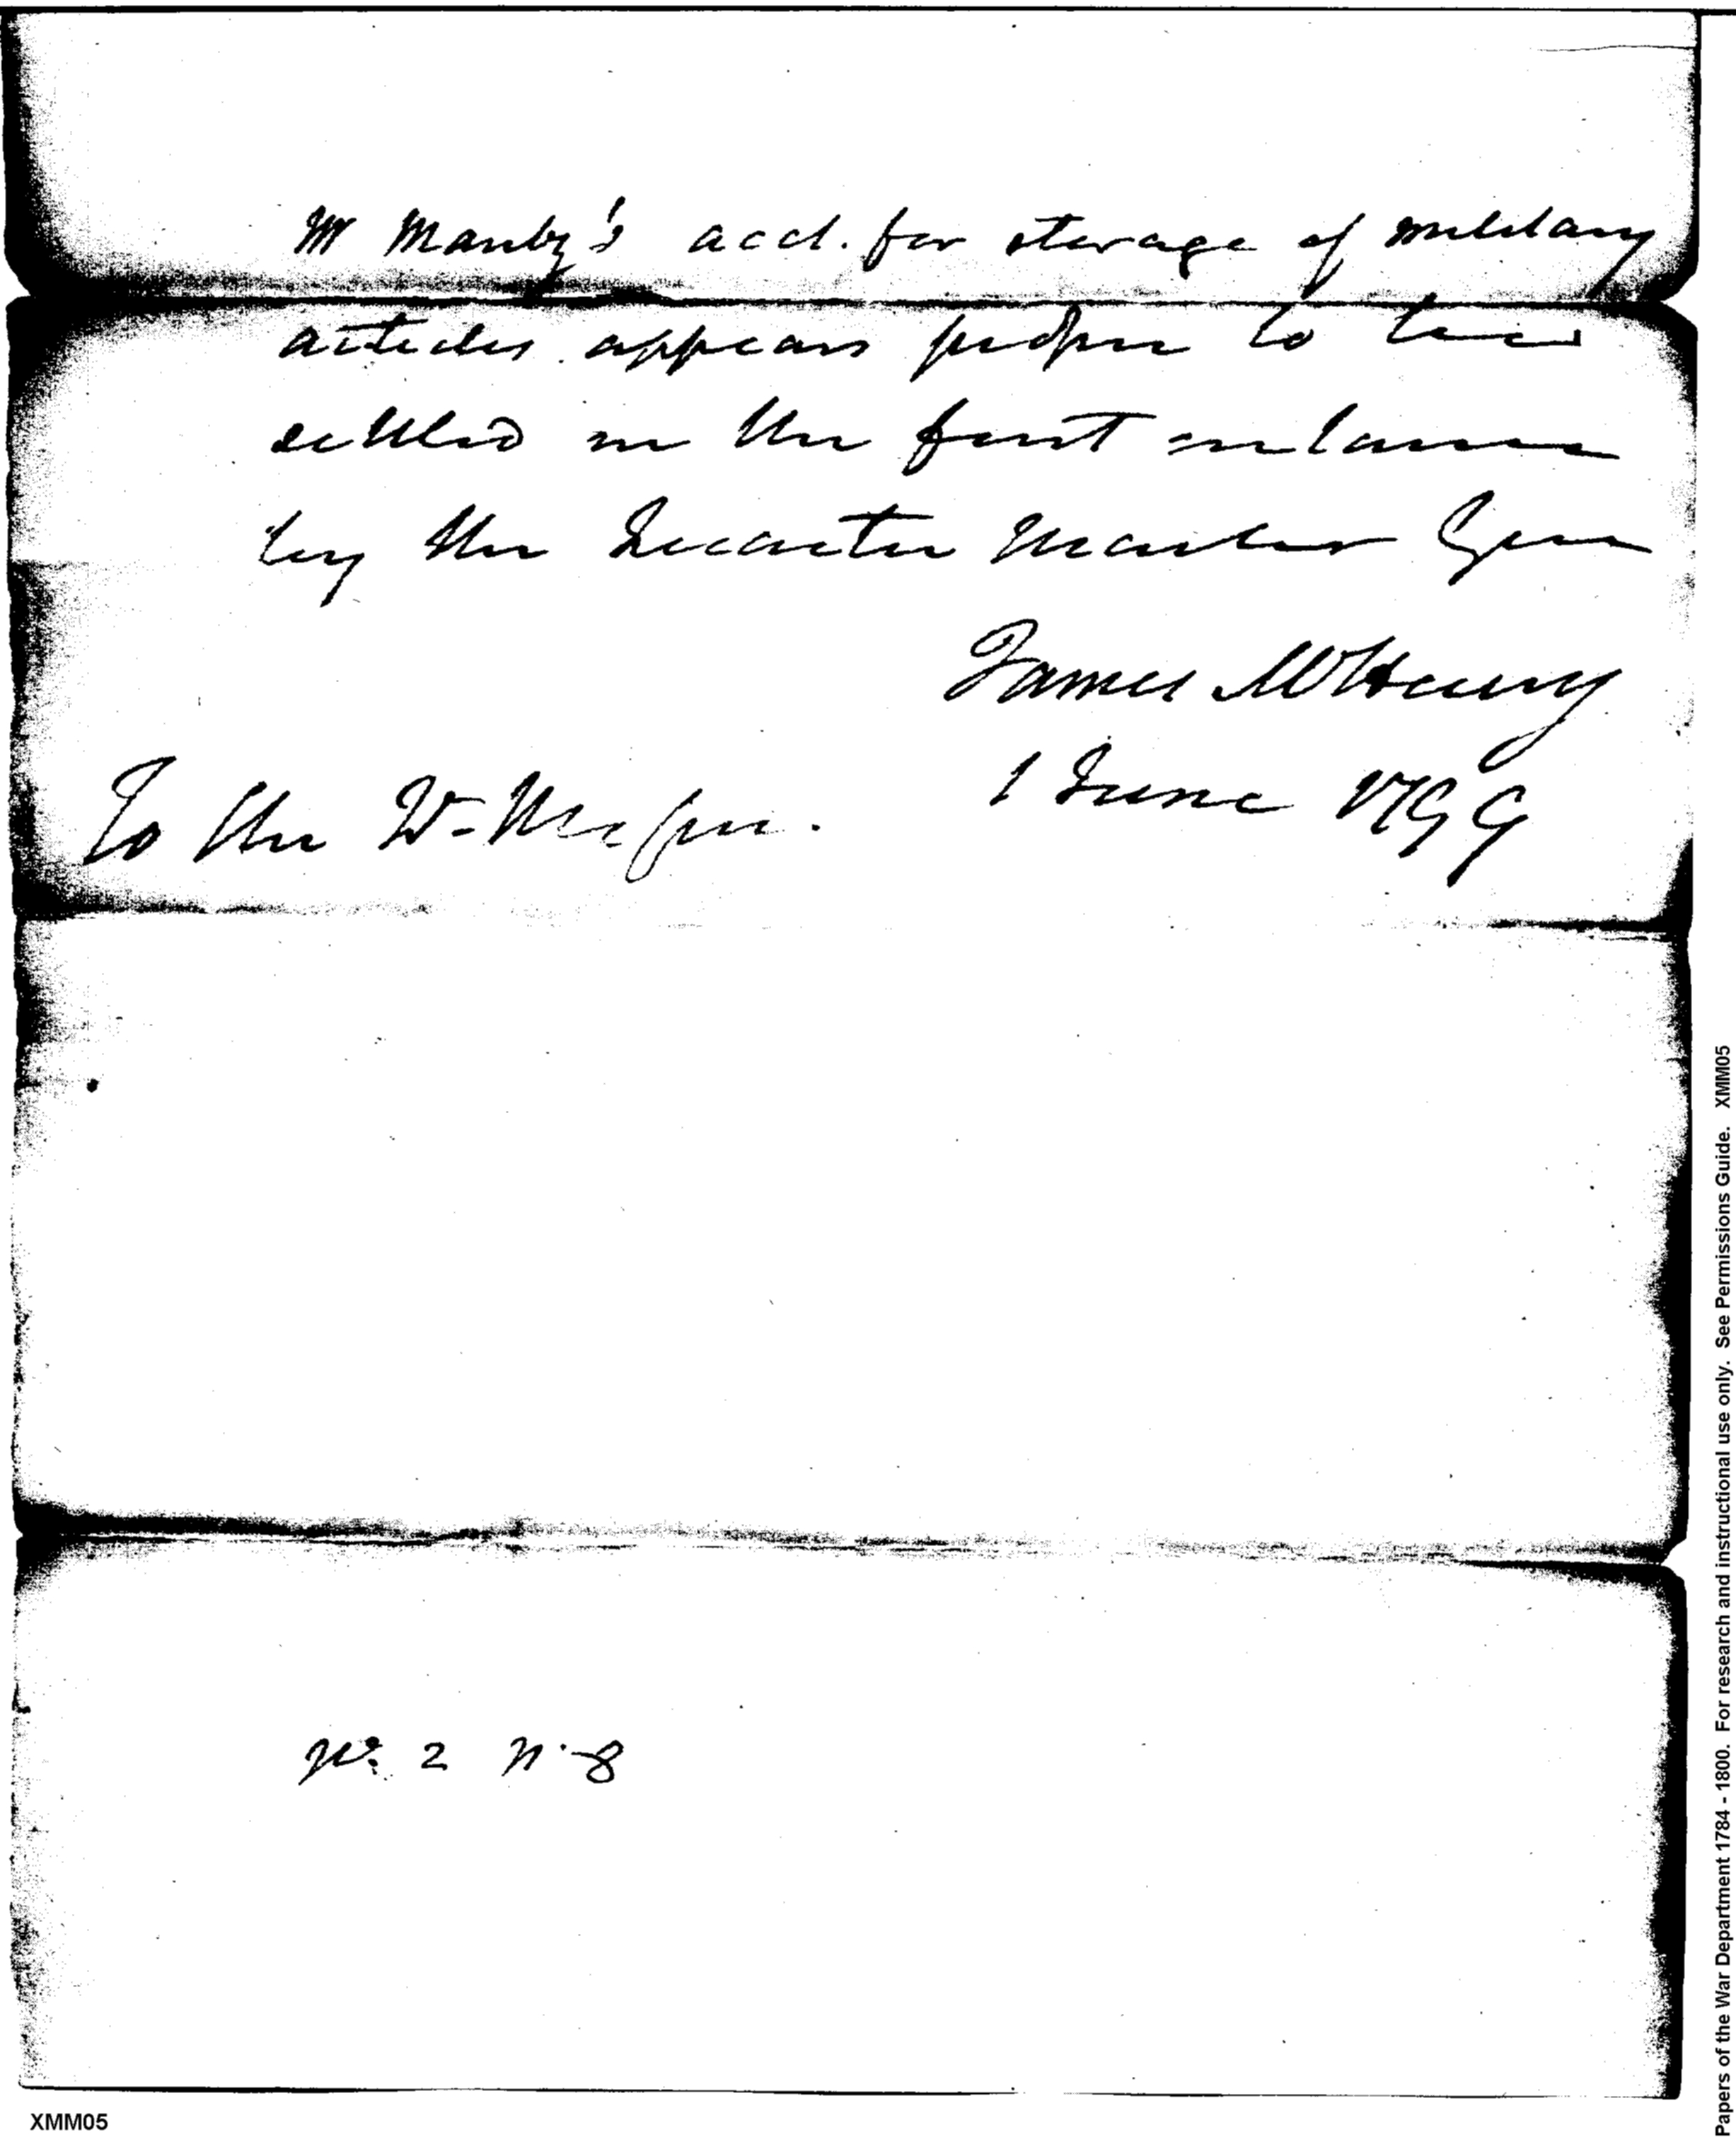 Mr Manby's acct. for storage of military
articles appears proper to be
settled in the first instance
by the Quarter Master Gen
James McHenry
1 June 1799
To the Qr Mr Gen.
No. 2 N. 8
XMM05
Papers of the War Department 1784 - 1800. For research and instructional use only. See Permissions Guide. XMM05